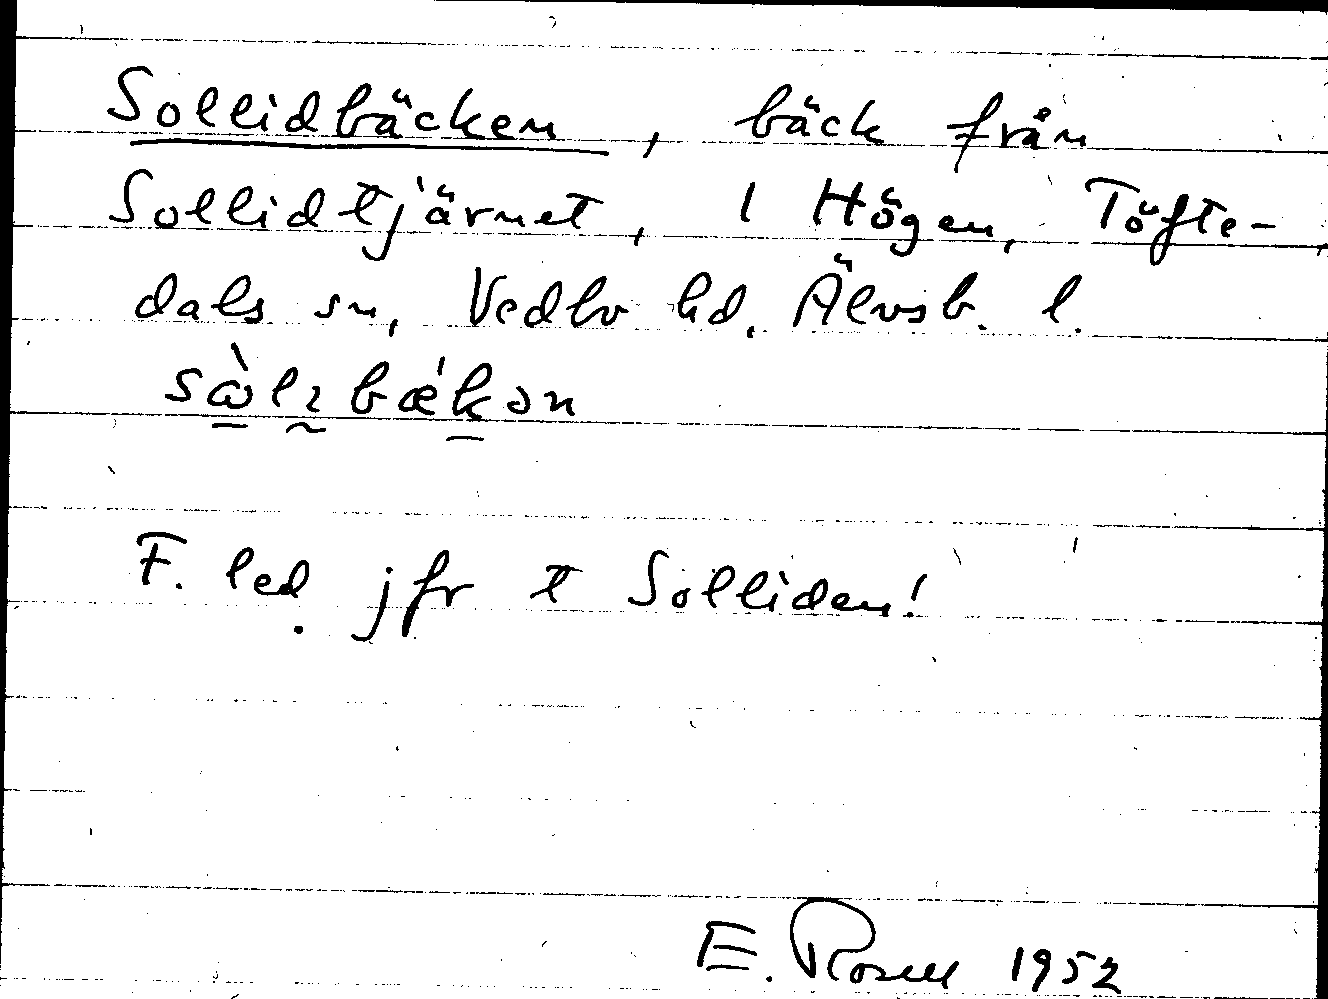 Sollidbäcken, bäck från
Sollidtjärnet, 1 Högen, Töfte-
dals sn, Vedbo hd, Älvsb. l.
sὼlɿbǽkən
F. led jfr t Solliden!
E. Rosell 1952